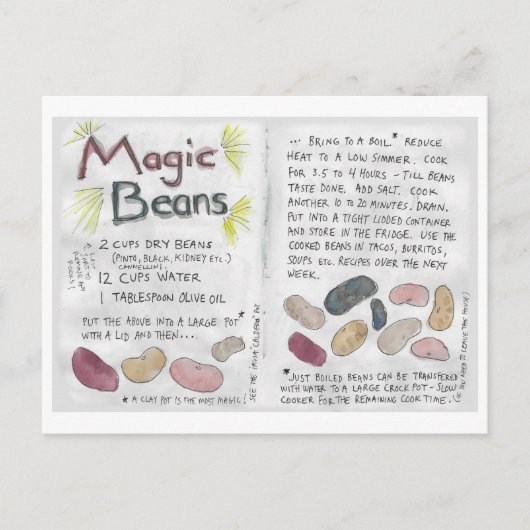 Magic
Beans
2 CUPS DRY BEANS
(PINTO, BLACK, KIDNEY ETC.)
CANNELLINI
12 CUPS WATER
1 TABLESPOON OLIVE OIL
PUT THE ABOVE INTO A LARGE POT*
WITH A LID AND THEN...
* A CLAY POT IS THE MOST MAGIC!
POT
... BRING TO A BOIL.* REDUCE
HEAT TO A LOW SIMMER. COOK
FOR 3.5 TO 4 HOURS - TILL BEANS
TASTE DONE. ADD SALT. COOK
ANOTHER 10 TO 20 MINUTES. DRAIN.
PUT INTO A TIGHT LIDDED CONTAINER
AND STORE IN THE FRIDGE. USE THE
COOKED BEANS IN TACOS, BURRITOS,
SOUPS ETC. RECIPES OVER THE NEXT
WEEK.
*JUST BOILED BEANS CAN BE TRANSFERED
WITH WATER TO A LARGE CROCK POT - SLOW
COOKER FOR THE REMAINING COOK TIME.
(IF YOU NEED TO LEAVE THE HOUSE)